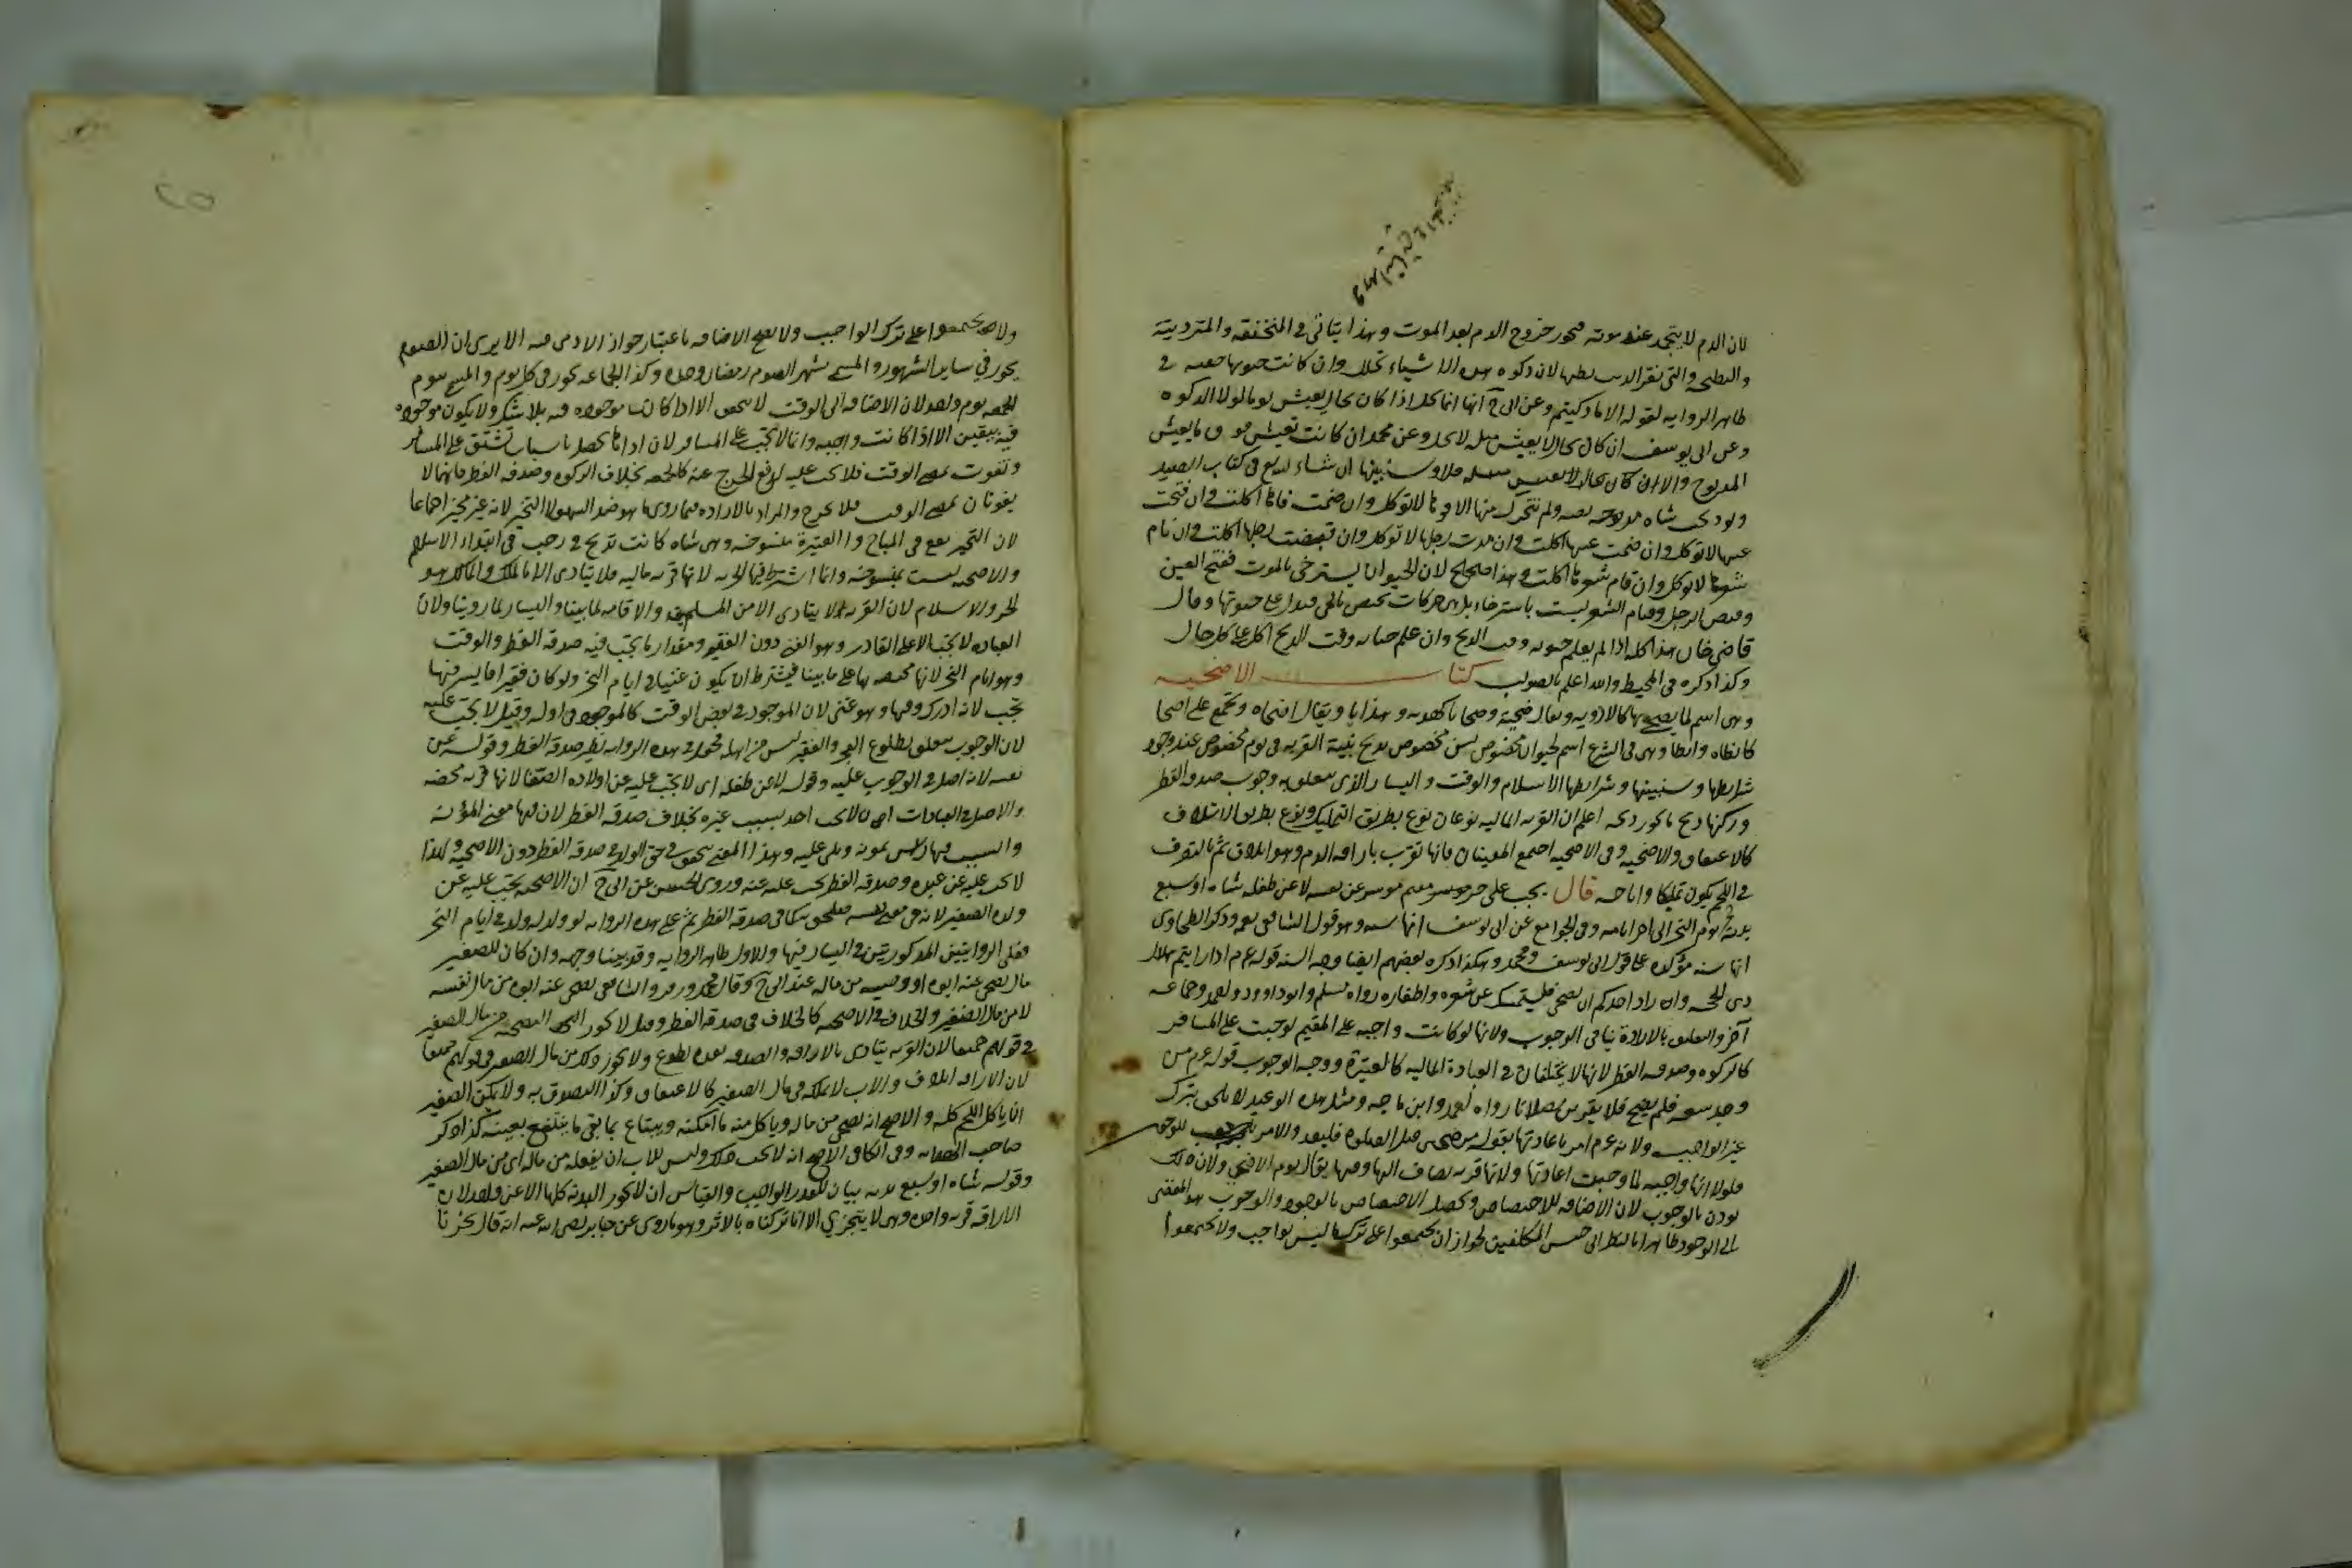 لان الدم لا يتجمد عند موته فيجوز خروج الدم بعد الموت وهذا يتأتى في المنخنقة والمتردية
والنطيحة والتي نقر الذيب بطنها لان ذكوة هذه الاشياء تحلل وان كانت حيوتها خفيفة في
ظاهر الرواية لقوله الا ما ذكيتم وعن ابي ح انها انما تحل اذا كان بحال يعيش يوما لولا الذكوة
وعن ابي يوسف ان كان بحال لا يعيش مثله لا يحل وعن محمد ان كانت تعيش فوق ما يعيش
المذبوح والا ان كان بحال لا يعيش مثله فلا وسنبينها ان شاء الله تع في كتاب الصيد
ولو ذبح شاة مريضة ولم تتحرك منها الا فوها لا توكل وان ضمت فاها اكلت وان فتحت
عينها لا توكل وان ضمت عينها اكلت وان مدت رجلها لا توكل وان قبضت رجلها اكلت وان نام
شعرها لا توكل وان قام شعرها اكلت وهذا صحيح لان الحيوان يسترخي بالموت ففتح العين
وقبض الرجل وقيام الشعر ليست باسترخاء بل هي حركات تختص بالحي فتدل على حيوتها وقال
قاضي خان هذا كله اذا لم يعلم حيوته وقت الذبح وان علم حياته وقت الذبح اكل على كل حال
وكذا ذكره في المحيط والله اعلم بالصواب كتاب الاضحية
وهي اسم لما يضحى بها كالادوية ويقال ضحية وضحايا كهدية وهدايا ويقال اضحاه وتجمع على اضحا
كارطاه وارطا وهي في الشرع اسم لحيوان مخصوص بسن مخصوص يذبح بنية القربة في يوم مخصوص عند وجود
شرايطها وسببها وشرايطها الاسلام والوقت واليسار الذي يتعلق به وجوب صدقة الفطر
وركنها ذبح ما يجوز ذبحه اعلم ان القربة المالية نوعان نوع بطريق التمليك ونوع بطريق الاتلاف
كالاعتاق والاضحية وفي الاضحية اجتمع المعنيان فانها تقرب باراقة الدم وهو اتلاف ثم بالتصرف
في اللحم يكون تمليكا واباحة قال يجب على حر مسلم مقيم موسر عن نفسه لا عن طفله شاة او سبع
بدنة فجر يوم النحر الى اخر ايامه وفي الجوامع عن ابي يوسف انها سنة وهو قول الشافعي وذكر الطحاوي
انها سنة مؤكدة على قول ابي يوسف ومحمد وهكذا ذكره بعضهم ايضا وجه السنة قوله عم اذا رايتم هلال
ذي الحجة واراد احدكم ان يضحي فليمسك عن شعره واظفاره رواه مسلم وابو داوود واحمد وجماعة
آخر والتعليق بالارادة ينافي الوجوب ولانها لو كانت واجبة على المقيم لوجبت على المسافر
كالزكوة وصدقة الفطر لانهما لا يختلفان في العبادة المالية كالعتيرة ووجه الوجوب قوله عم من
وجد سعة فلم يضح فلا يقربن مصلانا رواه احمد وابن ماجه ومثل هذه الوعيد لا يلحق بترك
غير الواجب ولانه عم امر باعادتها بقوله من ضحى قبل الصلوة فليعد والامر للوجوب
فلولا انها واجبة لما وجبت اعادتها ولانها قربة يضاف اليها وقتها يقال يوم الاضحى ولان ذلك
يؤذن بالوجوب لان الاضافة للاختصاص وتحصل الاختصاص بالوجود والوجوب هو المفضي
الى الوجود ظاهرا بالنظر الى جنس المكلفين لجواز ان يجتمعوا على ترك ما ليس بواجب ولا يجتمعوا
ولا يجتمعوا على ترك الواجب ولا تصح الاضافة باعتبار جواز الاداء فيه الا يرى ان الصوم
يجوز في ساير الشهور والمسمى شهر الصوم رمضان وحده وكذا الجماعة تجوز في كل يوم والمسمى يوم
الجمعة يوم واحد لان الاضافة الى الوقت لا تتحقق الا اذا كانت موجودة فيه بلا شك ولا يكون موجودة
فيه بيقين الا اذا كانت واجبة وانما لا تجب على المسافر لان اداها تحصل باسباب تشق على المسافر
وتفوت بمضي الوقت فلا تجب عليه لدفع الحرج عنه كالجمعة بخلاف الزكوة وصدقة الفطر فانهما لا
يفوتان بمضي الوقت فلا حرج والمراد بالارادة فيما روي ما هو ضد السهو لا التخير لانه غير مخير اجماعا
لان التخير يقع في المباح والعتيرة منسوخة وهي شاة كانت تذبح في رجب في ابتداء الاسلام
والاضحية ليست بمنسوخة وانما اشترط فيها الحرية لانها قربة مالية فلا يتادى الا بالملك والمالك هو
الحر والاسلام لان القربة لا يتادى الا من المسلم والاقامة لما بينا واليسار لما روينا ولان
العبادة لا تجب الا على القادر وهو الغني دون الفقير ومقداره ما يجب فيه صدقة الفطر والوقت
وهو ايام النحر لانها مختصة بها على ما بينا فيشترط ان يكون غنيا في ايام النحر ولو كان فقيرا فايسر فيها
تجب لانه ادرك وقتها وهو غني لان الموجود في بعض الوقت كالموجود في اوله وقيل لا تجب عليه
لان الوجوب يتعلق بطلوع الفجر والفقير ليس من اهله فحول هذه الرواية نظير صدقة الفطر وقوله عن
نفسه لانه اصل في الوجوب عليه وقوله لا عن طفله اي لا تجب عليه عن اولاده الصغار لانها قربة محضة
والاصل في العبادات ان لا تجب على احد بسبب غيره بخلاف صدقة الفطر لان فيها معنى المؤنة
والسبب فيها راس يمونه ويلي عليه وهذا المعنى يتحقق في حق الولد في صدقة الفطر دون الاضحية ولهذا
لا تجب عليه عن عبده وصدقة الفطر تجب عليه عنه وروى الحسن عن ابي ح ان الاضحية تجب عليه عن
ولده الصغير لانه في معنى نفسه فيلحق به كما في صدقة الفطر ثم على هذه الرواية لو ولد له ولد في ايام النحر
فعلى الروايتين المذكورتين في اليسار فيها والاول ظاهر الرواية وقد بينا وجهه وان كان للصغير
مال يضحي عنه ابوه او وصيه من ماله عند ابي ح وقال محمد وزفر والشافعي يضحي عنه ابوه من مال نفسه
لا من مال الصغير والخلاف في الاضحية كالخلاف في صدقة الفطر وقيل لا تجوز التضحية من مال الصغير
في قولهم جميعا لان القربة يتادى بالاراقة والصدقة بعده تطوع ولا يجوز ذلك من مال الصغير في قولهم جميعا
لان الاراقة اتلاف والاب لا يملكه في مال الصغير كالاعتاق وكذا التصدق به ولا يمكن الصغير
ان ياكل اللحم كله والاصح انه يضحي من ماله وياكل منه ما امكنه ويبتاع بما بقي ما ينتفع بعينه كذا ذكر
صاحب الهداية وفي الكافي الاصح انه لا يجب ذلك وليس للاب ان يفعله من ماله اي من مال الصغير
وقوله شاة او سبع بدنة بيان للقدر الواجب والقياس ان لا تجوز البدنة كلها الا عن واحد لان
الاراقة قربة واحدة وهي لا يتجزي الا انا تركناه بالاثر وهو ما روي عن جابر رضي الله عنه انه قال نحرنا